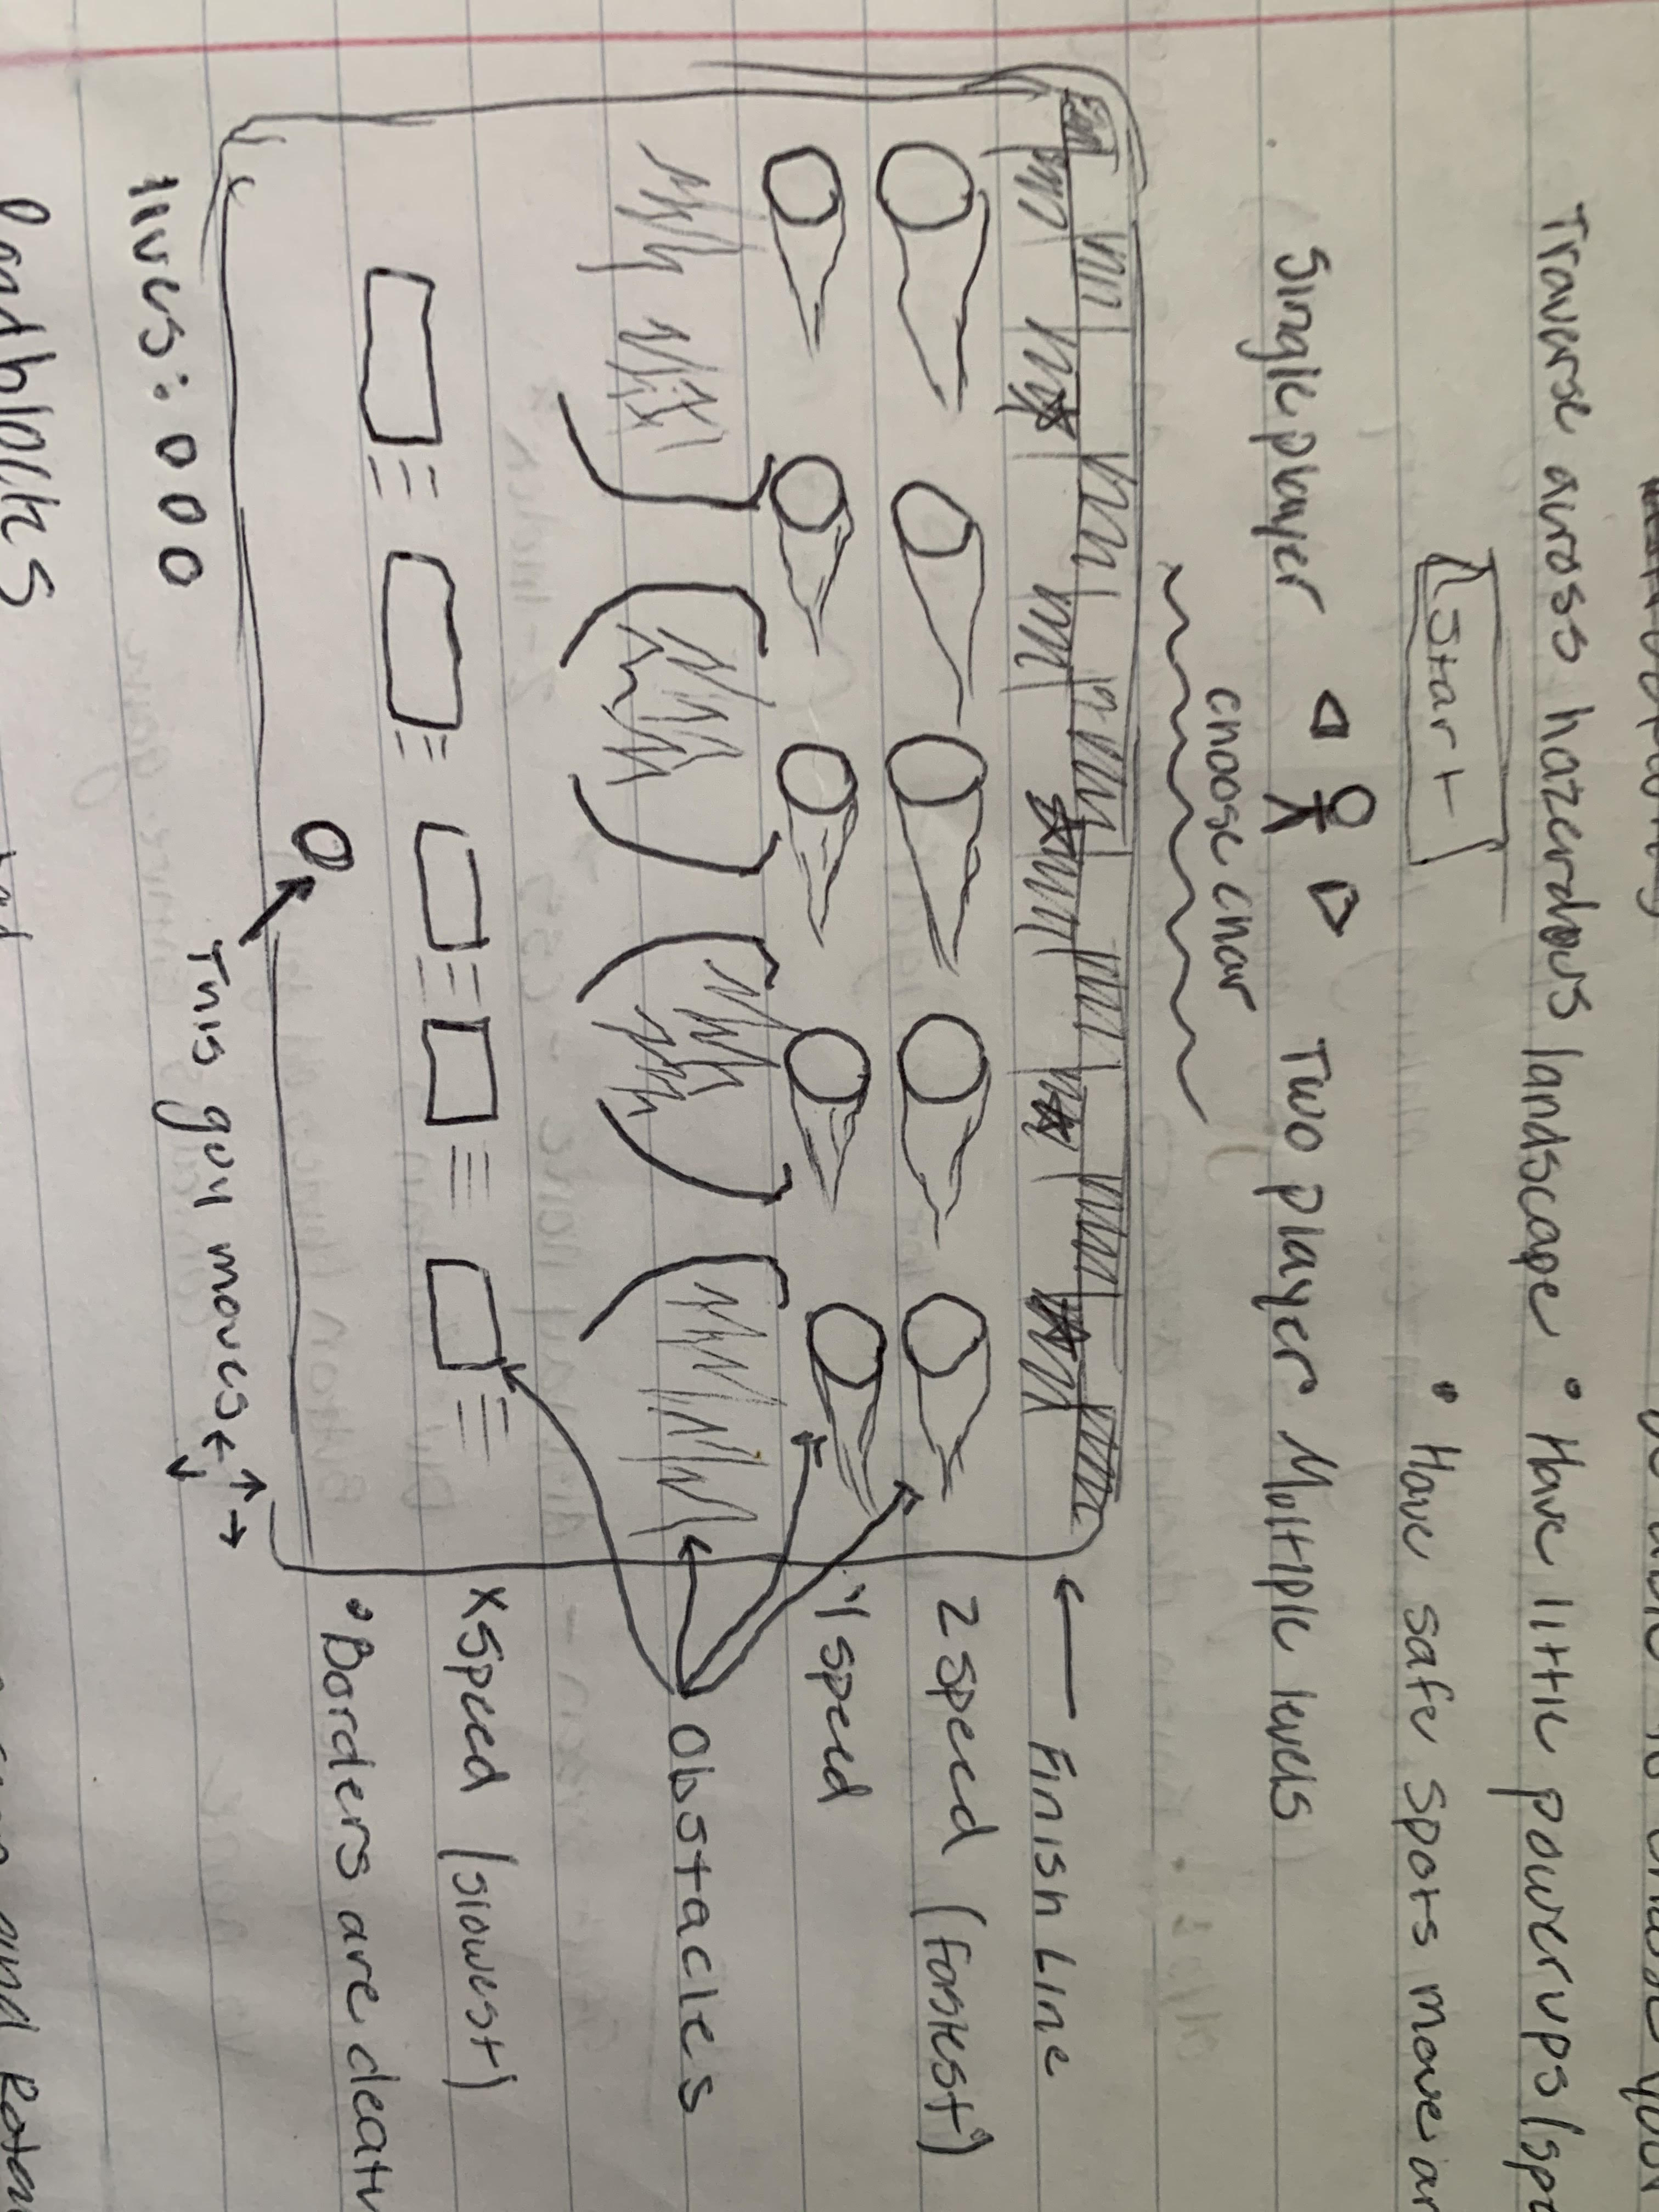 Traverse across hazerdous landscape • Have little powerups/spe
Start
• Have safe spots move ar
Single player
Two player
Multiple levels
choose char
← Finish Line
2 speed (fastest)
1 speed
Obstacles
x speed (slowest)
• Borders are death
lives: 0 0 0
This guy moves ← ↑ ↓ →
Roadblocks